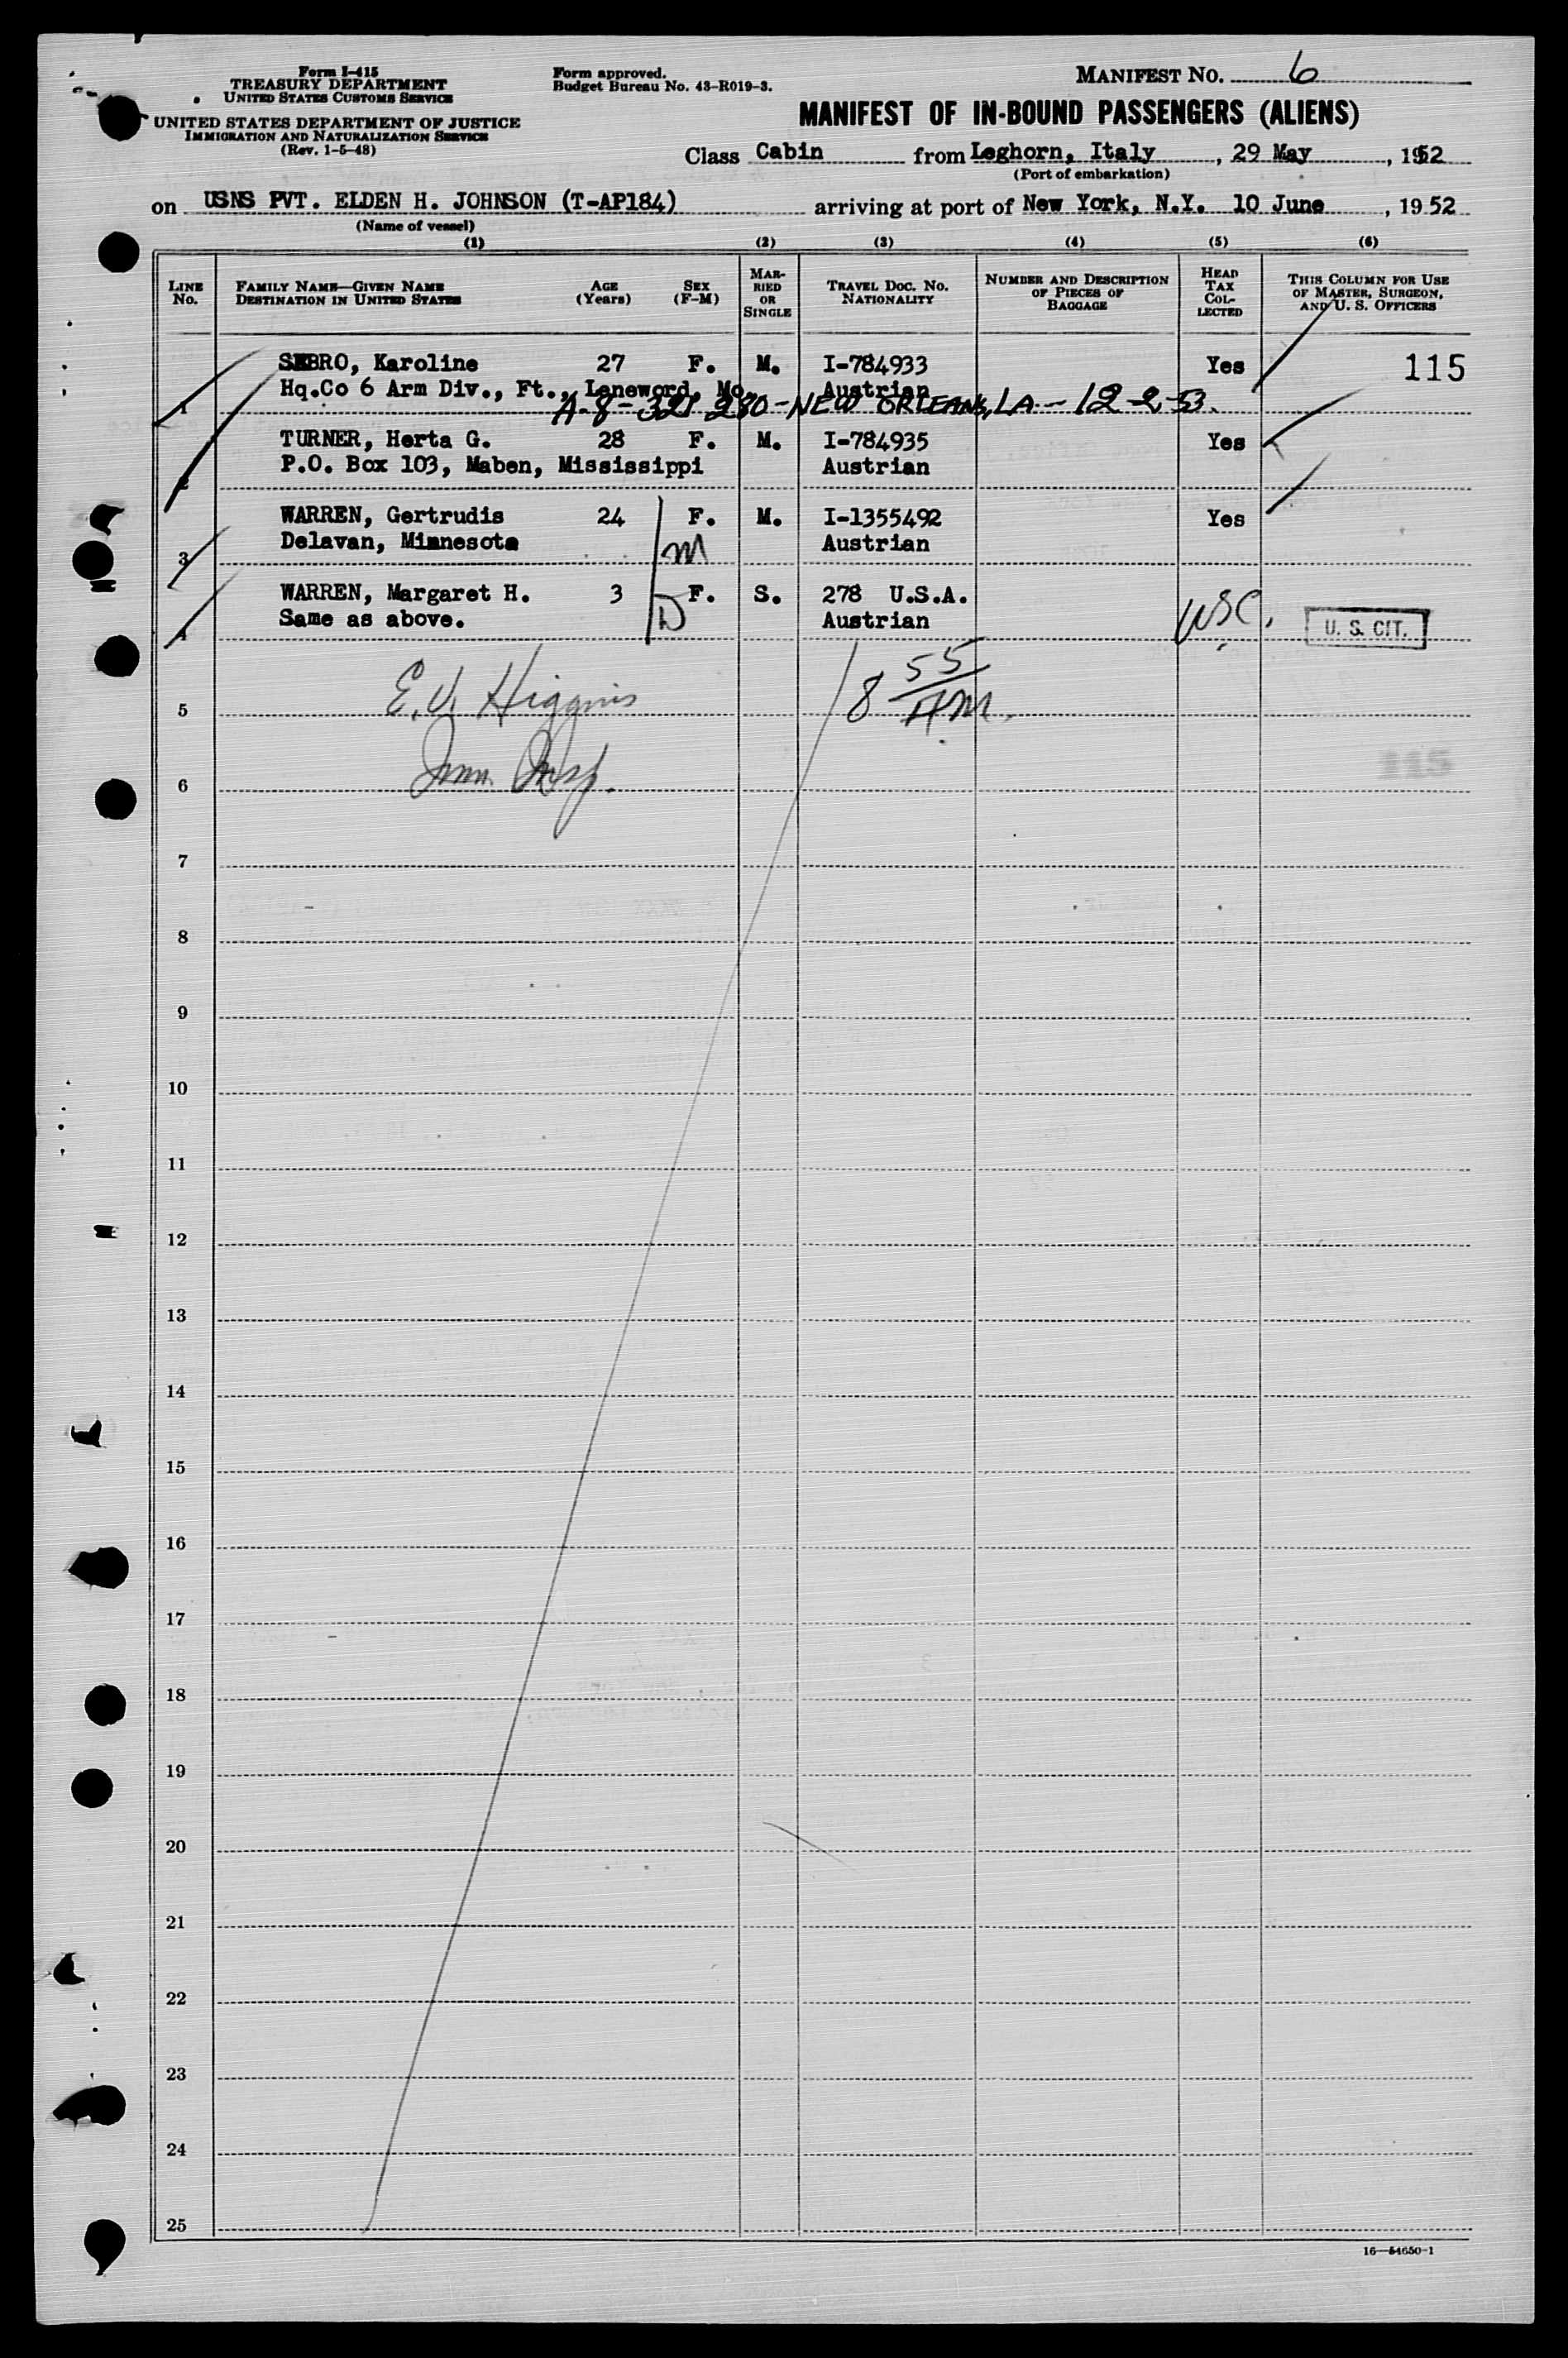 Form I-415
TREASURY DEPARTMENT
UNITED STATES CUSTOMS SERVICE
UNITED STATES DEPARTMENT OF JUSTICE
IMMIGRATION AND NATURALIZATION SERVICE
(Rev. 1-5-48)
Form approved.
Budget Bureau No. 43-R019-3.
MANIFEST NO. 6
MANIFEST OF IN-BOUND PASSENGERS (ALIENS)
Class Cabin from Leghorn, Italy, 29 May, 1952
(Port of embarkation)
on USNS PVT. ELDEN H. JOHNSON (T-AP184) arriving at port of New York, N.Y. 10 June, 1952
(Name of vessel)
(1) (2) (3) (4) (5) (6)
LINE No.
FAMILY NAME—GIVEN NAME
DESTINATION IN UNITED STATES
AGE (Years)
SEX (F-M)
MARRIED OR SINGLE
TRAVEL DOC. NO. NATIONALITY
NUMBER AND DESCRIPTION OF PIECES OF BAGGAGE
HEAD TAX COLLECTED
THIS COLUMN FOR USE OF MASTER, SURGEON, AND U. S. OFFICERS
SEBRO, Karoline 27 F. M. I-784933 Yes 115
1 Hq.Co 6 Arm Div., Ft., Leneword, Mo Austrian
A-8-321 280-NEW ORLEANS, LA-12-2-53.
TURNER, Herta G. 28 F. M. I-784935 Yes
2 P.O. Box 103, Maben, Mississippi Austrian
WARREN, Gertrudis 24 F. M. I-1355492 Yes
3 Delavan, Minnesota M Austrian
WARREN, Margaret H. 3 F. S. 278 U.S.A.
4 Same as above. D Austrian USC. U. S. CIT.
E.V. Higgins 8 55 AM.
5
Imm. Insp.
115
6
7
8
9
10
11
12
13
14
15
16
17
18
19
20
21
22
23
24
25
16—54650-1